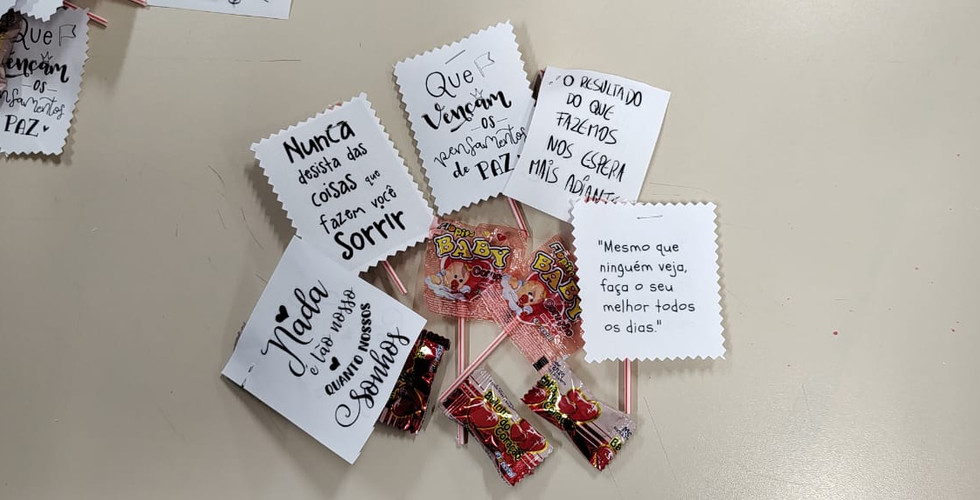 Que
vençam
os
pensamentos
PAZ
Nunca
desista das
coisas que
fazem você
Sorrir
Que
Vençam
os
pensamentos
de PAZ
O RESULTADO
DO QUE
FAZEMOS
NOS ESPERA
MAIS ADIANTE
"Mesmo que
ninguém veja,
faça o seu
melhor todos
os dias."
Nada
é tão nosso
QUANTO NOSSOS
Sonhos
Apito
BABY
BABY